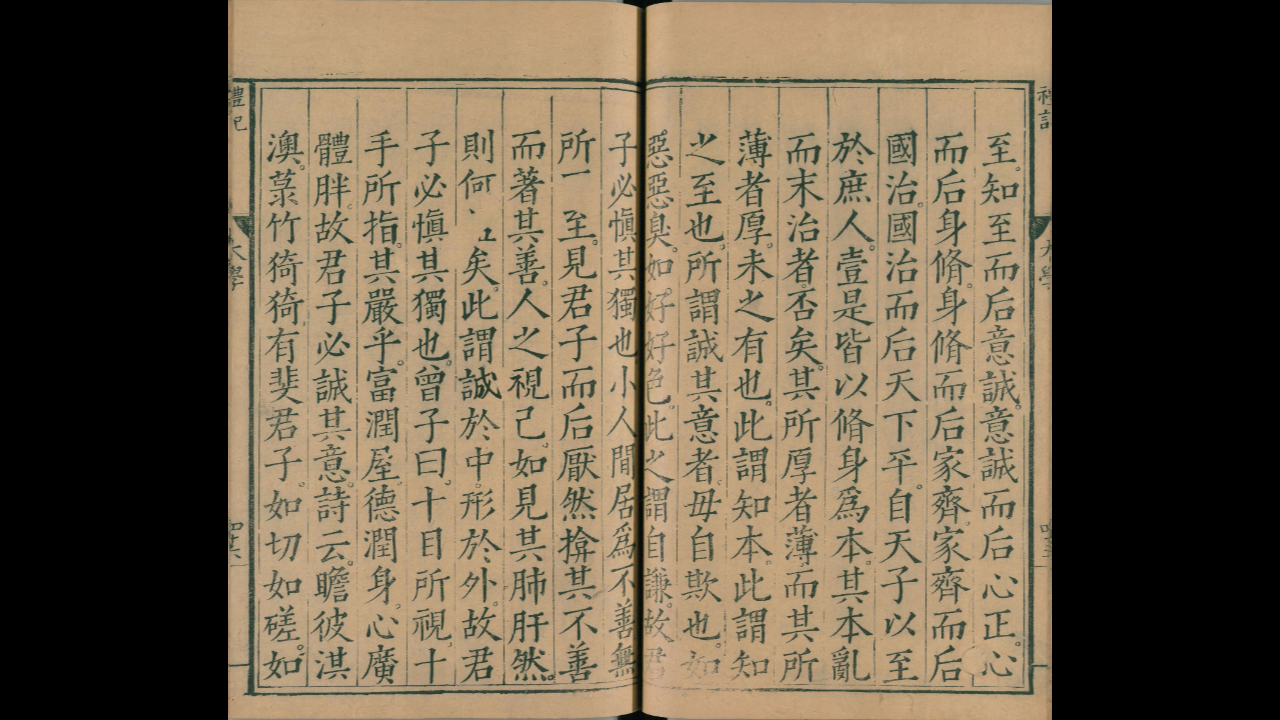 禮記
大學
至。知至而后意誠。意誠而后心正。心
而后身脩。身脩而后家齊。家齊而后
國治。國治而后天下平。自天子以至
於庶人。壹是皆以脩身爲本。其本亂
而末治者。否矣。其所厚者薄。而其所
薄者厚。未之有也。此謂知本。此謂知
之至也。所謂誠其意者。毋自欺也。如
惡惡臭。如好好色。此之謂自謙。故君
子必愼其獨也小人閒居爲不善無
所至。見君子而后厭然揜其不善
而著其善。人之視己。如見其肺肝然。
則何矣。此謂誠於中。形於外。故君
子必愼其獨也。曾子曰。十目所視。十
手所指。其嚴乎。富潤屋。德潤身。心廣
體胖。故君子必誠其意。詩云。瞻彼淇
澳。菉竹猗猗有斐君子。如切如磋。如
禮記
大學